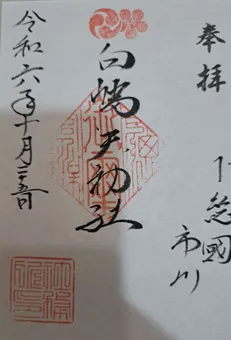 奉拝
下総國
市川
白幡天神社
令和六年十月二十五日